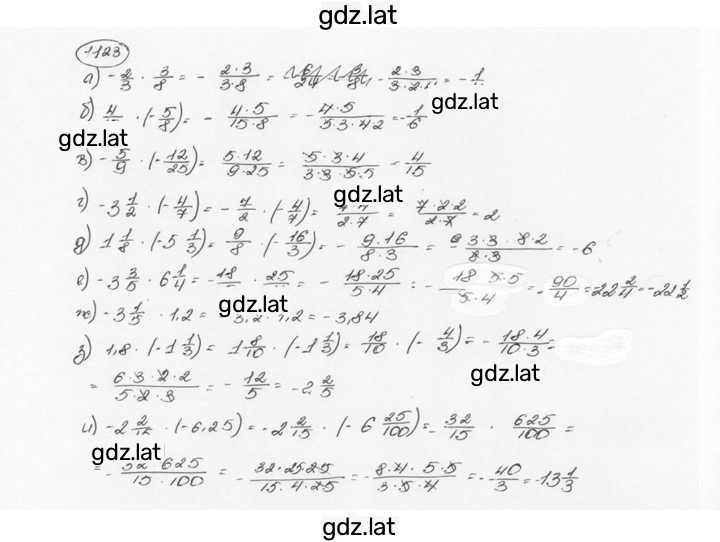 gdz.lat
1123
а) -2/3 · 3/8 = - 2·3/3·8 = - 2·3/3·2·
gdz.lat
б) 4 · (-5/8) = - 4·5/15·8 = - 4·5/5·3·4·2 = -1/6
gdz.lat
в) -5/9 · (-12/25) = 5·12/9·25 = 5·3·4/3·3·5·5 = 4/15
gdz.lat
г) -3 1/2 · (-4/7) = -7/2 · (-4/7) = /2·7 = 7·2·2/2·7 = 2
д) 1 1/8 · (-5 1/3) = 9/8 · (-16/3) = - 9·16/8·3 = - 3·3·8·2/8·3 = -6
е) -3 3/5 · 6 1/4 = -18 · 25 = - 18·25/5·4 = - 18 5·5/5·4 = - 90/4 = 22 2/4 = -22 1/2
gdz.lat
ж) -3 1/5 · 1,2 = 3,2 · 1,2 = -3,84
з) 1,8 · (-1 1/3) = 1 8/10 · (-1 1/3) = 18/10 · (- 4/3) = - 18·4/10·3 =
gdz.lat
= 6·3·2·2/5·2·3 = - 12/5 = -2 2/5
и) -2 2/15 · (-6,25) = -2 2/15 · (-6 25/100) = - 32/15 · 625/100 =
gdz.lat
= - 32·625/15·100 = - 32·25·25/15·4·25 = - 8·4·5·5/3·5·4 = - 40/3 = -13 1/3
gdz.lat